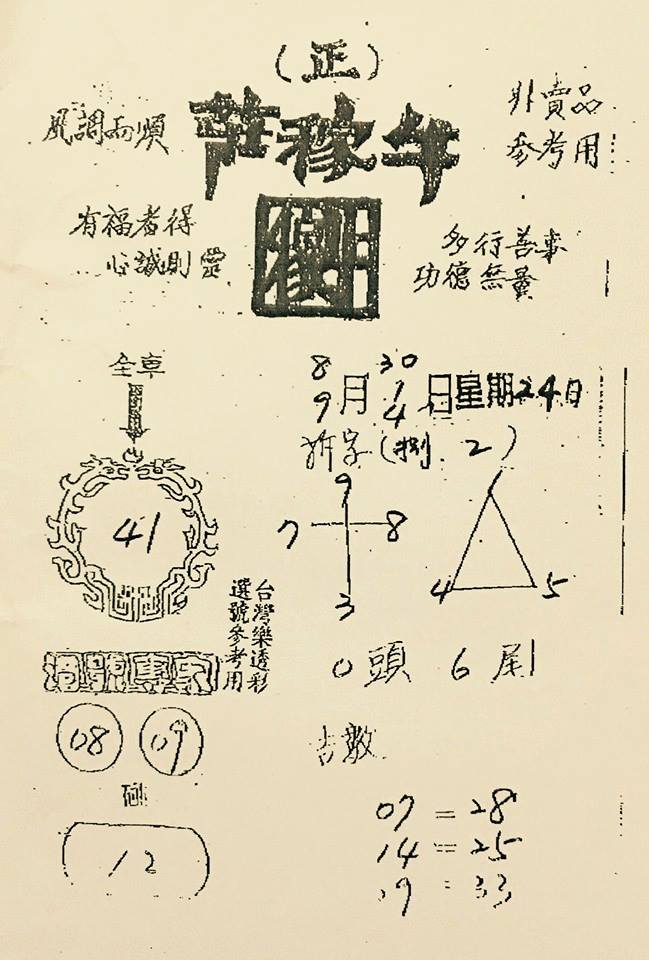 (正)
風調雨順
牛稼莊
非賣品
參考用
有福者得
心誠則靈
多行善事
功德無量
全車
8 30
9月 1 日星期24日
4
拆字(捌 2)
41
9
7 8
3
1
4 5
台灣樂透彩
選號參考用
0頭 6尾
08 09
吉數
12
07 = 28
14 = 25
19 = 33